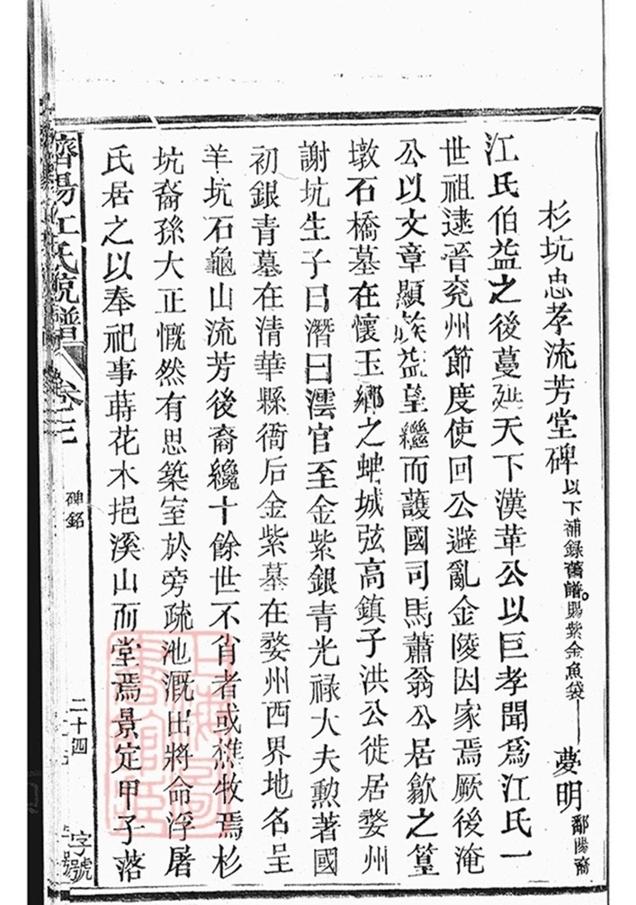 杉坑忠孝流芳堂碑以下補錄舊譜賜紫金魚袋 夢明鄱陽裔
江氏伯益之後蔓延天下漢革公以巨孝聞為江氏一
世祖逮晉兖州節度使回公避亂金陵因家焉厥後淹
公以文章顯族益望繼而護國司馬蕭翁公居歙之篁
墩石橋墓在懷玉鄉之蜱城弦高鎮子洪公徙居婺州
謝坑生子曰潛曰澐官至金紫銀青光祿大夫勲著國
初銀青墓在清華縣衙后金紫墓在婺州西界地名呈
羊坑石龜山流芳後裔纔十餘世不肖者或樵牧焉杉
坑裔孫大正慨然有思築室於旁疏池溉出將命浮屠
氏居之以奉祀事蒔花木挹溪山而堂焉景定甲子落
濟陽江氏統譜 卷之二
碑銘
二十四
字號